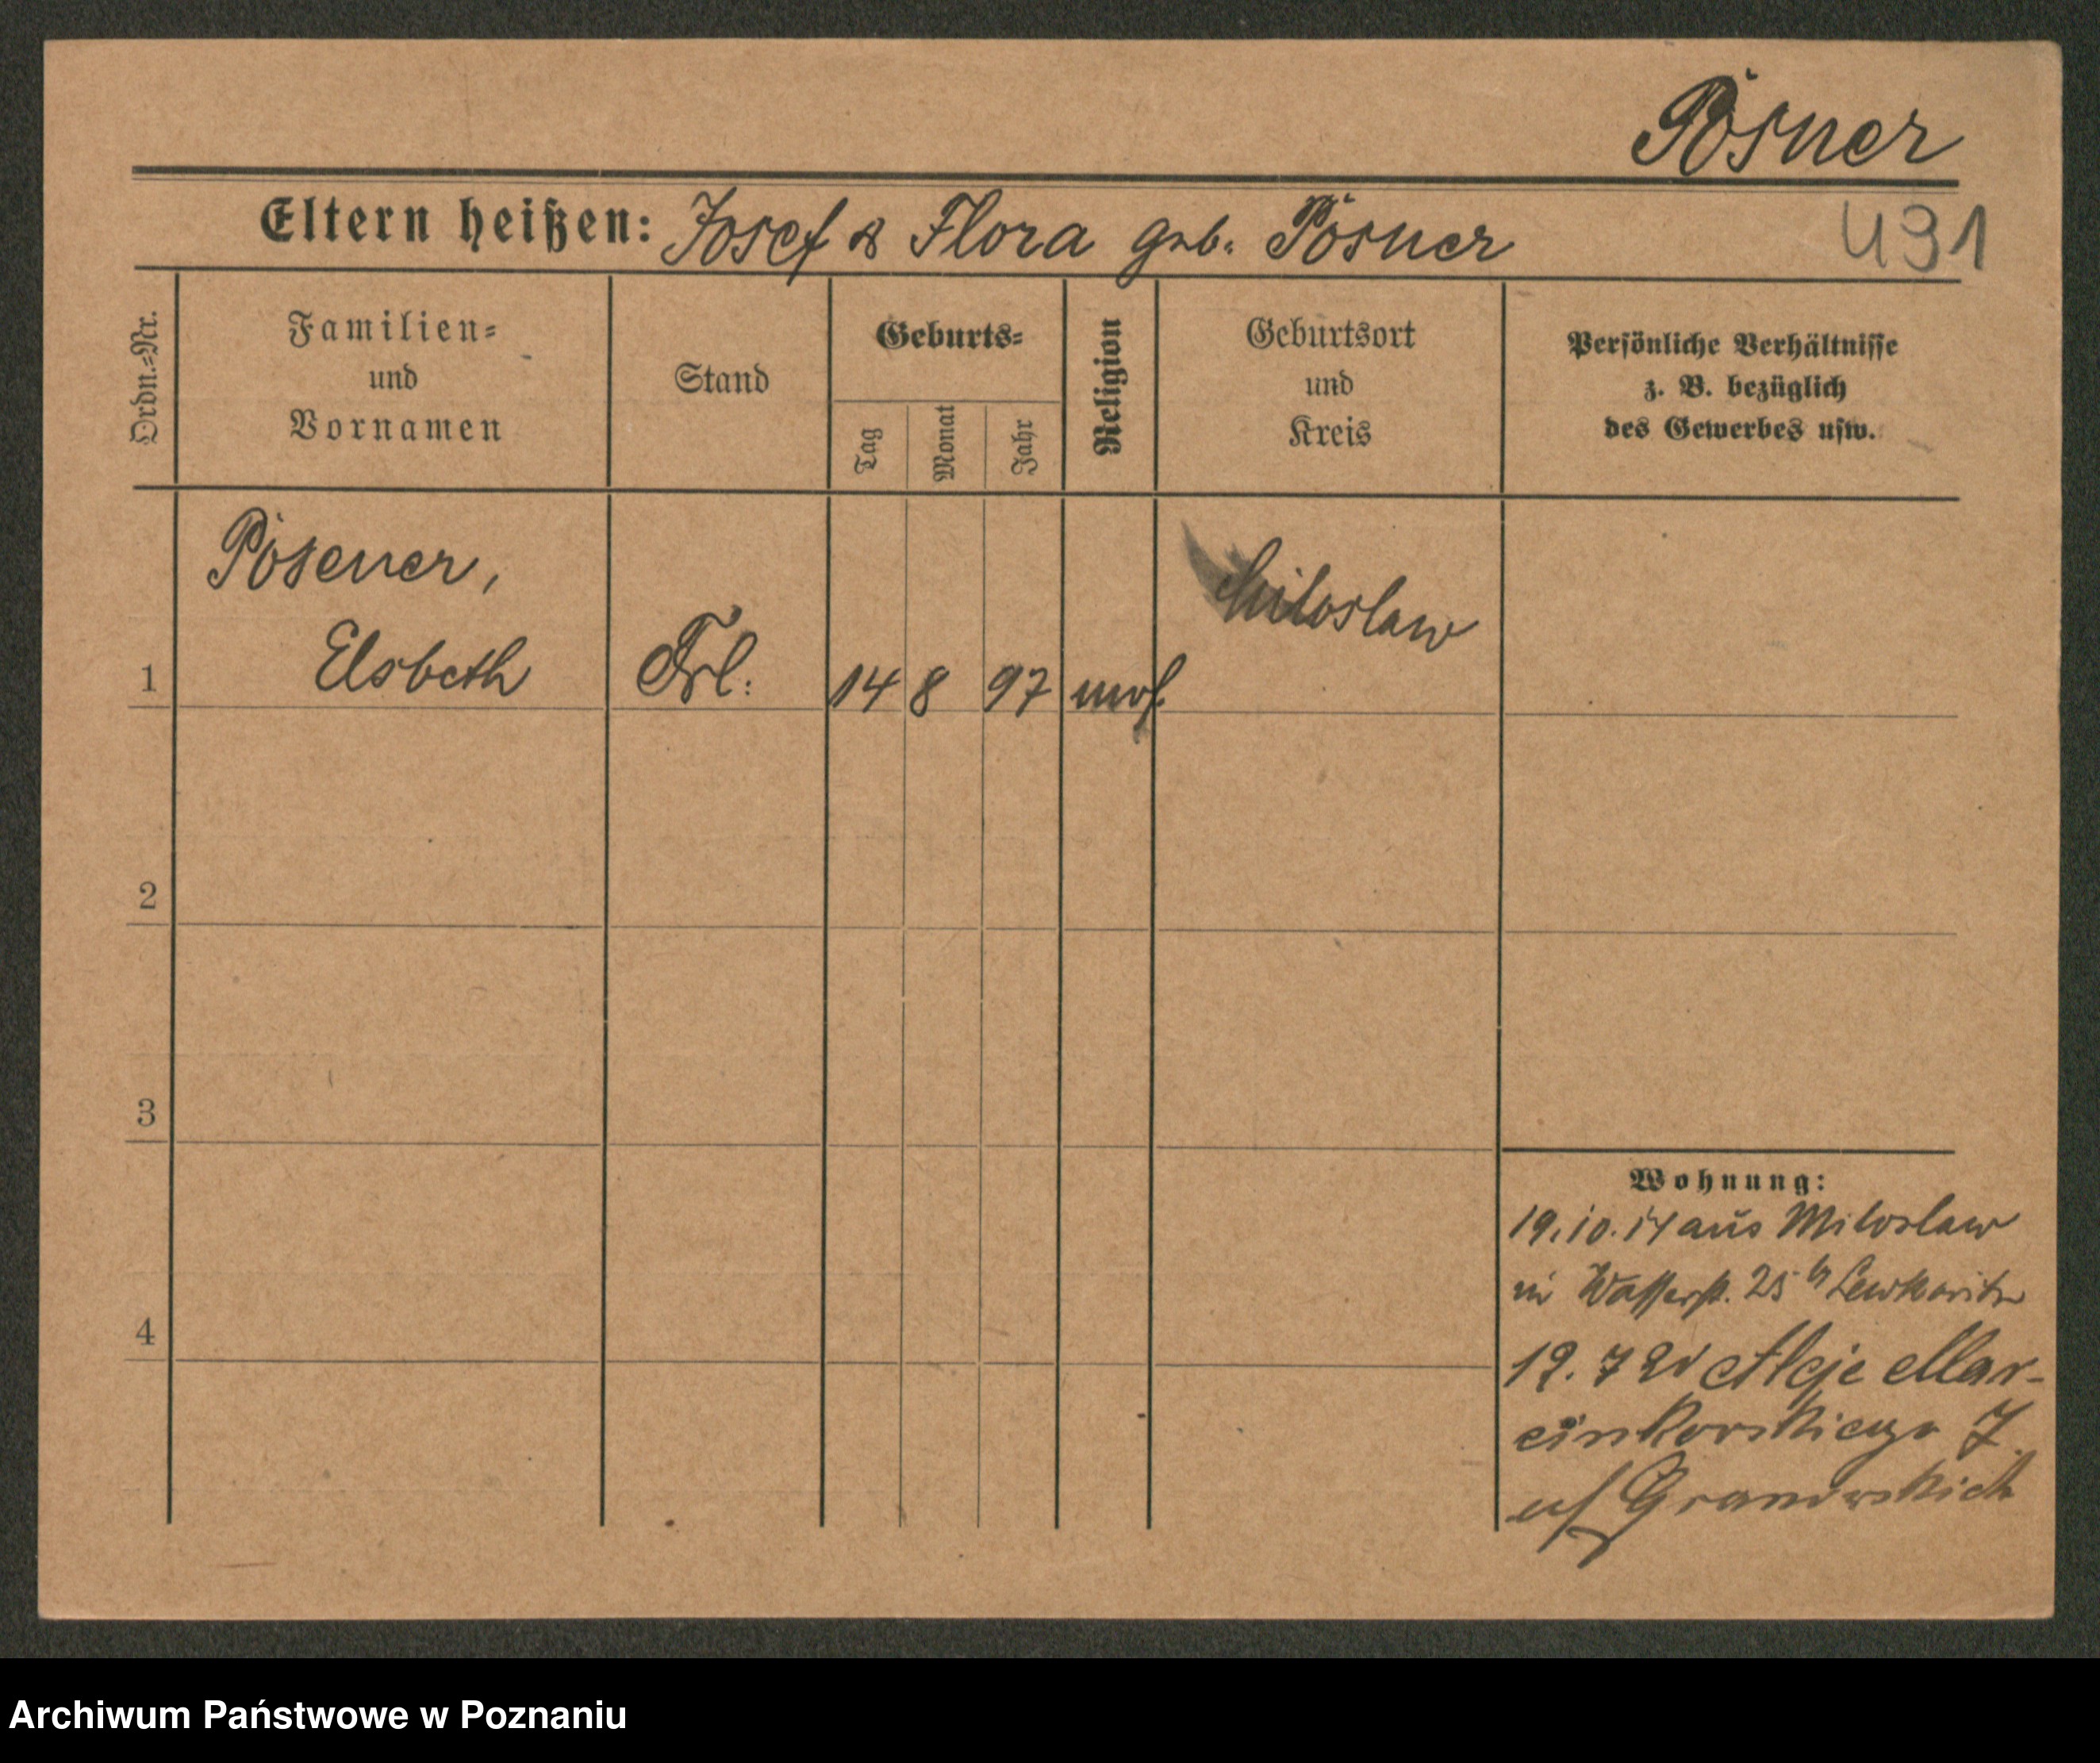 Posner
Eltern heißen: Josef & Flora geb. Posner
491
Ordn.=Nr.
Familien=
und
Vornamen
Stand
Geburts=
Tag
Monat
Jahr
Religion
Geburtsort
und
Kreis
Persönliche Verhältnisse
z. B. bezüglich
des Gewerbes usw.
Posener,
Elsbeth
1
Frl.
14 8 97 mos.
Miloslaw
2
3
4
Wohnung:
19.10.14 aus Miloslaw
in Wasserstr. 25
19. 7 20 Aleje Mar-
cinkowskiego 7
Granowskich
Archiwum Państwowe w Poznaniu